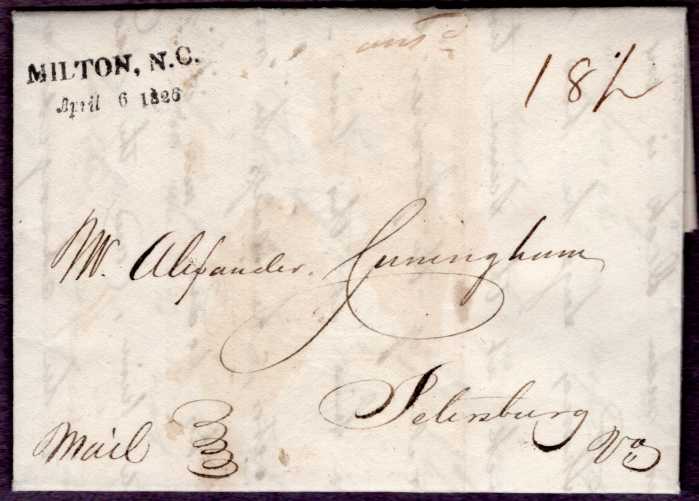 MILTON, N.C.
April 6 1826
ansd
18½
Mr. Alexander Cuningham
Petersburg
Va
Mail